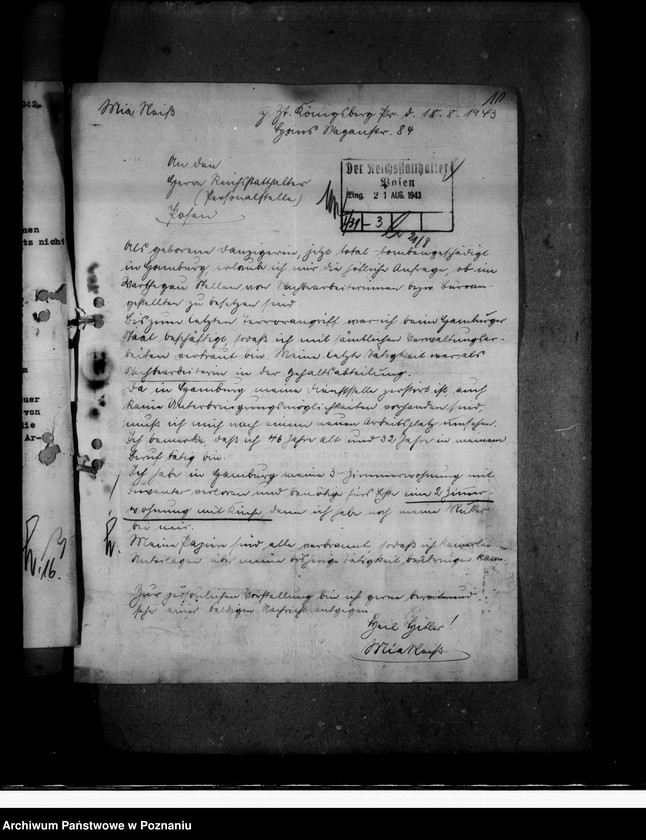 942.
nen
ts nicht
n
uer
von
die
Ar-
16.
Mia Reiß
z. Zt. Königsberg Pr. d. 18. 8. 1943
Wagnerstr. 84
An den
Herrn Reichsstatthalter
(Personalstelle)
Posen
Der Reichsstatthalter
Posen
Eing. 21 AUG. 1943
I/31 - 3
21/8
Als geborene Danzigerin, jetzt total bombengeschädigt
in Hamburg, erlaube ich mir die höfliche Anfrage, ob im
Warthegau Stellen von Sachbearbeiterinnen bezw. Büroan-
gestellten zu besetzen sind.
Bis zum letzten Terrorangriff war ich beim Hamburger
Staat beschäftigt, sodaß ich mit sämtlichen Verwaltungsar-
beiten vertraut bin. Meine letzte Tätigkeit war als
Sachbearbeiterin in der Gehaltsabteilung.
Da in Hamburg meine Dienststelle zerstört ist, auch
keine Unterbringungsmöglichkeiten vorhanden sind,
muß ich mich nach einem neuen Arbeitsplatz umsehen.
Ich bemerke, daß ich 46 Jahre alt und 32 Jahre in meinem
Beruf tätig bin.
Ich habe in Hamburg meine 3-Zimmerwohnung mit
Inventar verloren und benötige fürs Erste eine 2 Zimmer-
wohnung mit Küche, denn ich habe noch meine Mutter
bei mir.
Meine Papiere sind alle verbrannt, sodaß ich keinerlei
Unterlagen über meine bisherige Tätigkeit beibringen kann.
Zur persönlichen Vorstellung bin ich gerne bereit und
sehe einer baldigen Nachricht entgegen.
Heil Hitler!
Mia Reiß
Archiwum Państwowe w Poznaniu